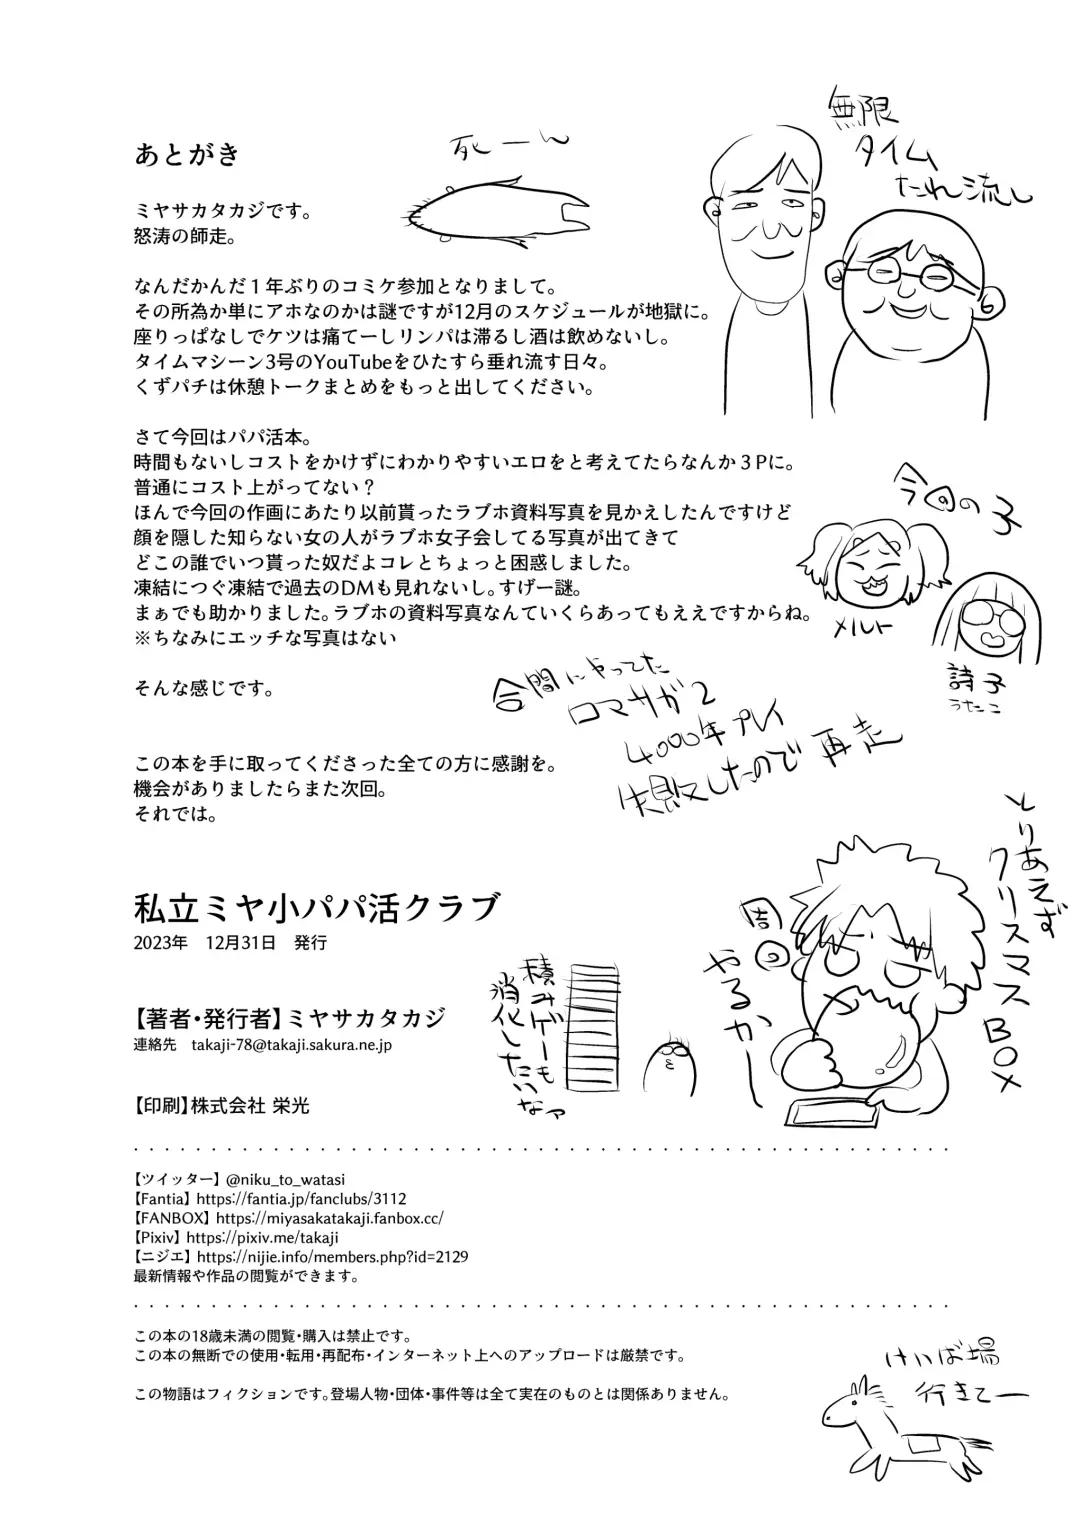 あとがき
死ーん
無限
タイム
たれ流し
ミヤサカタカジです。
怒涛の師走。
なんだかんだ１年ぶりのコミケ参加となりまして。
その所為か単にアホなのかは謎ですが12月のスケジュールが地獄に。
座りっぱなしでケツは痛てーしリンパは滞るし酒は飲めないし。
タイムマシーン3号のYouTubeをひたすら垂れ流す日々。
くずパチは休憩トークまとめをもっと出してください。
さて今回はパパ活本。
時間もないしコストをかけずにわかりやすいエロをと考えてたらなんか３Pに。
普通にコスト上がってない？
ほんで今回の作画にあたり以前貰ったラブホ資料写真を見かえしたんですけど
顔を隠した知らない女の人がラブホ女子会してる写真が出てきて
どこの誰でいつ貰った奴だよコレとちょっと困惑しました。
凍結につぐ凍結で過去のDMも見れないし。すげー謎。
まぁでも助かりました。ラブホの資料写真なんていくらあってもええですからね。
※ちなみにエッチな写真はない
今回の子
メルト
詩子
うたこ
そんな感じです。
合間にやってた
ロマサガ2
4000年プレイ
失敗したので再走
この本を手に取ってくださった全ての方に感謝を。
機会がありましたらまた次回。
それでは。
とりあえず
クリスマスBOX
周回
やるかー
私立ミヤ小パパ活クラブ
2023年　12月31日　発行
積みゲーも
消化したいなァ
【著者・発行者】ミヤサカタカジ
連絡先　takaji-78@takaji.sakura.ne.jp
【印刷】株式会社 栄光
【ツイッター】@niku_to_watasi
【Fantia】https://fantia.jp/fanclubs/3112
【FANBOX】https://miyasakatakaji.fanbox.cc/
【Pixiv】https://pixiv.me/takaji
【ニジエ】https://nijie.info/members.php?id=2129
最新情報や作品の閲覧ができます。
この本の18歳未満の閲覧・購入は禁止です。
この本の無断での使用・転用・再配布・インターネット上へのアップロードは厳禁です。
この物語はフィクションです。登場人物・団体・事件等は全て実在のものとは関係ありません。
けいば場
行きてー